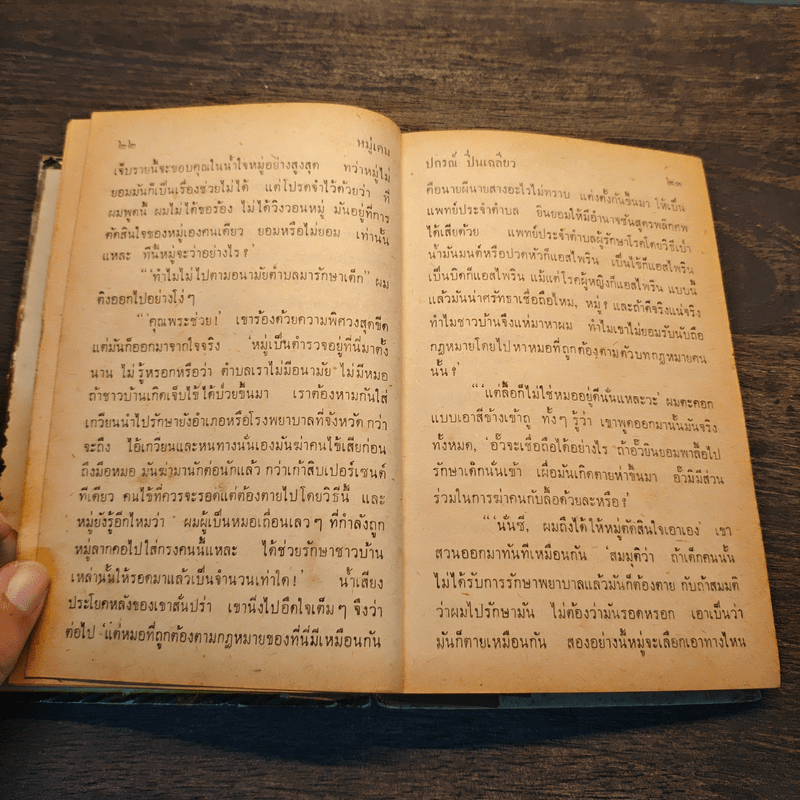 ๒๒
หมู่เคน
เจ็บรายนี้จะขอบคุณในน้ำใจหมู่อย่างสูงสุด ทว่าหมู่ไม่
ยอมมันก็เป็นเรื่องช่วยไม่ได้ แต่โปรดจำไว้ด้วยว่า ที่
ผมพูดนี้ ผมไม่ได้ขอร้อง ไม่ได้วิงวอนหมู่ มันอยู่ที่การ
ตัดสินใจของหมู่เองคนเดียว ยอมหรือไม่ยอม เท่านั้น
แหละ ทีนี้หมู่จะว่าอย่างไร?'
“'ทำไมไม่ไปตามอนามัยตำบลมารักษาเด็ก” ผม
ติงออกไปอย่างโง่ๆ
“'คุณพระช่วย!' เขาร้องด้วยความพิศวงสุดขีด
แต่มันก็ออกมาจากใจจริง 'หมู่เป็นตำรวจอยู่ที่นี่มาตั้ง
นาน ไม่รู้หรอกหรือว่า ตำบลเราไม่มีอนามัย ไม่มีหมอ
ถ้าชาวบ้านเกิดเจ็บไข้ได้ป่วยขึ้นมา เราต้องหามกันใส่
เกวียนนำไปรักษายังอำเภอหรือโรงพยาบาลที่จังหวัด กว่า
จะถึง ไอ้เกวียนและหนทางนั่นเองมันฆ่าคนไข้เสียก่อน
ถึงมือหมอ มันฆ่ามานักต่อนักแล้ว กว่าเก้าสิบเปอร์เซนต์
ทีเดียว คนไข้ที่ควรจะรอดแต่ต้องตายไปโดยวิธีนี้ และ
หมู่ยังรู้อีกไหมว่า ผมผู้เป็นหมอเถื่อนเลวๆ ที่กำลังถูก
หมู่ลากคอไปใส่กรงคนนี้แหละ ได้ช่วยรักษาชาวบ้าน
เหล่านั้นให้รอดมาแล้วเป็นจำนวนเท่าใด!' น้ำเสียง
ประโยคหลังของเขาสั่นปร่า เขานิ่งไปอึดใจเต็มๆ จึงว่า
ต่อไป 'แต่หมอที่ถูกต้องตามกฎหมายของที่นี่มีเหมือนกัน
ปกรณ์ ปิ่นเฉลียว
๒๓
คือนายผีนายสางอะไรไม่ทราบ แต่งตั้งกันขึ้นมา ให้เป็น
แพทย์ประจำตำบล ยินยอมให้มีอำนาจชันสูตรพลิกศพ
ได้เสียด้วย แพทย์ประจำตำบลผู้รักษาโรคโดยวิธีเป่า
น้ำมันมนต์หรือปวดหัวก็แอสไพริน เป็นไข้ก็แอสไพริน
เป็นบิดก็แอสไพริน แม้แต่โรคผู้หญิงก็แอสไพริน แบบนี้
แล้วมันน่าศรัทธาเชื่อถือไหม, หมู่? และถ้าดีจริงแน่จริง
ทำไมชาวบ้านจึงแห่มาหาผม ทำไมเขาไม่ยอมรับนับถือ
กฎหมายโดยไปหาหมอที่ถูกต้องตามตัวบทกฎหมายคน
นั้น?'
“'แต่ลื้อก็ไม่ใช่หมออยู่ดีนั่นแหละวะ' ผมตะคอก
แบบเอาสีข้างเข้าถู ทั้งๆ รู้ว่า เขาพูดออกมานั้นมันจริง
ทั้งหมด, 'อั๊วจะเชื่อถือได้อย่างไร ถ้าอั๊วยินยอมพาลื้อไป
รักษาเด็กนั่นเข้า เผื่อมันเกิดตายห่าขึ้นมา อั๊วมิมีส่วน
ร่วมในการฆ่าคนกับลื้อด้วยละหรือ?'
“'นั่นซี, ผมถึงได้ให้หมู่ตัดสินใจเอาเอง' เขา
สวนออกมาทันทีเหมือนกัน 'สมมุติว่า ถ้าเด็กคนนั้น
ไม่ได้รับการรักษาพยาบาลแล้วมันก็ต้องตาย กับถ้าสมมติ
ว่าผมไปรักษามัน ไม่ต้องว่ามันรอดหรอก เอาเป็นว่า
มันก็ตายเหมือนกัน สองอย่างนี้หมู่จะเลือกเอาทางไหน